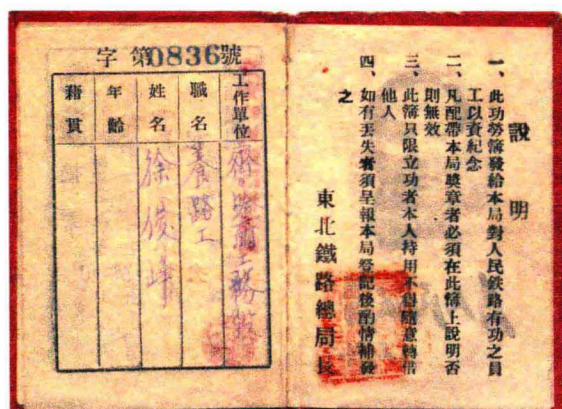 說明
一、此功勞簿發給本局對人民鉄路有功之員
工以資紀念
二、凡配帶本局獎章者必須在此簿上說明否
則無效
三、此簿只限立功者本人持用不得隨意轉借
他人
四、如有丟失者須呈報本局登記後酌情補發
之
東北鐵路總局長
字第0836號
工作單位 齊
職名 養路工
姓名 徐俊峰
年齡
藉貫